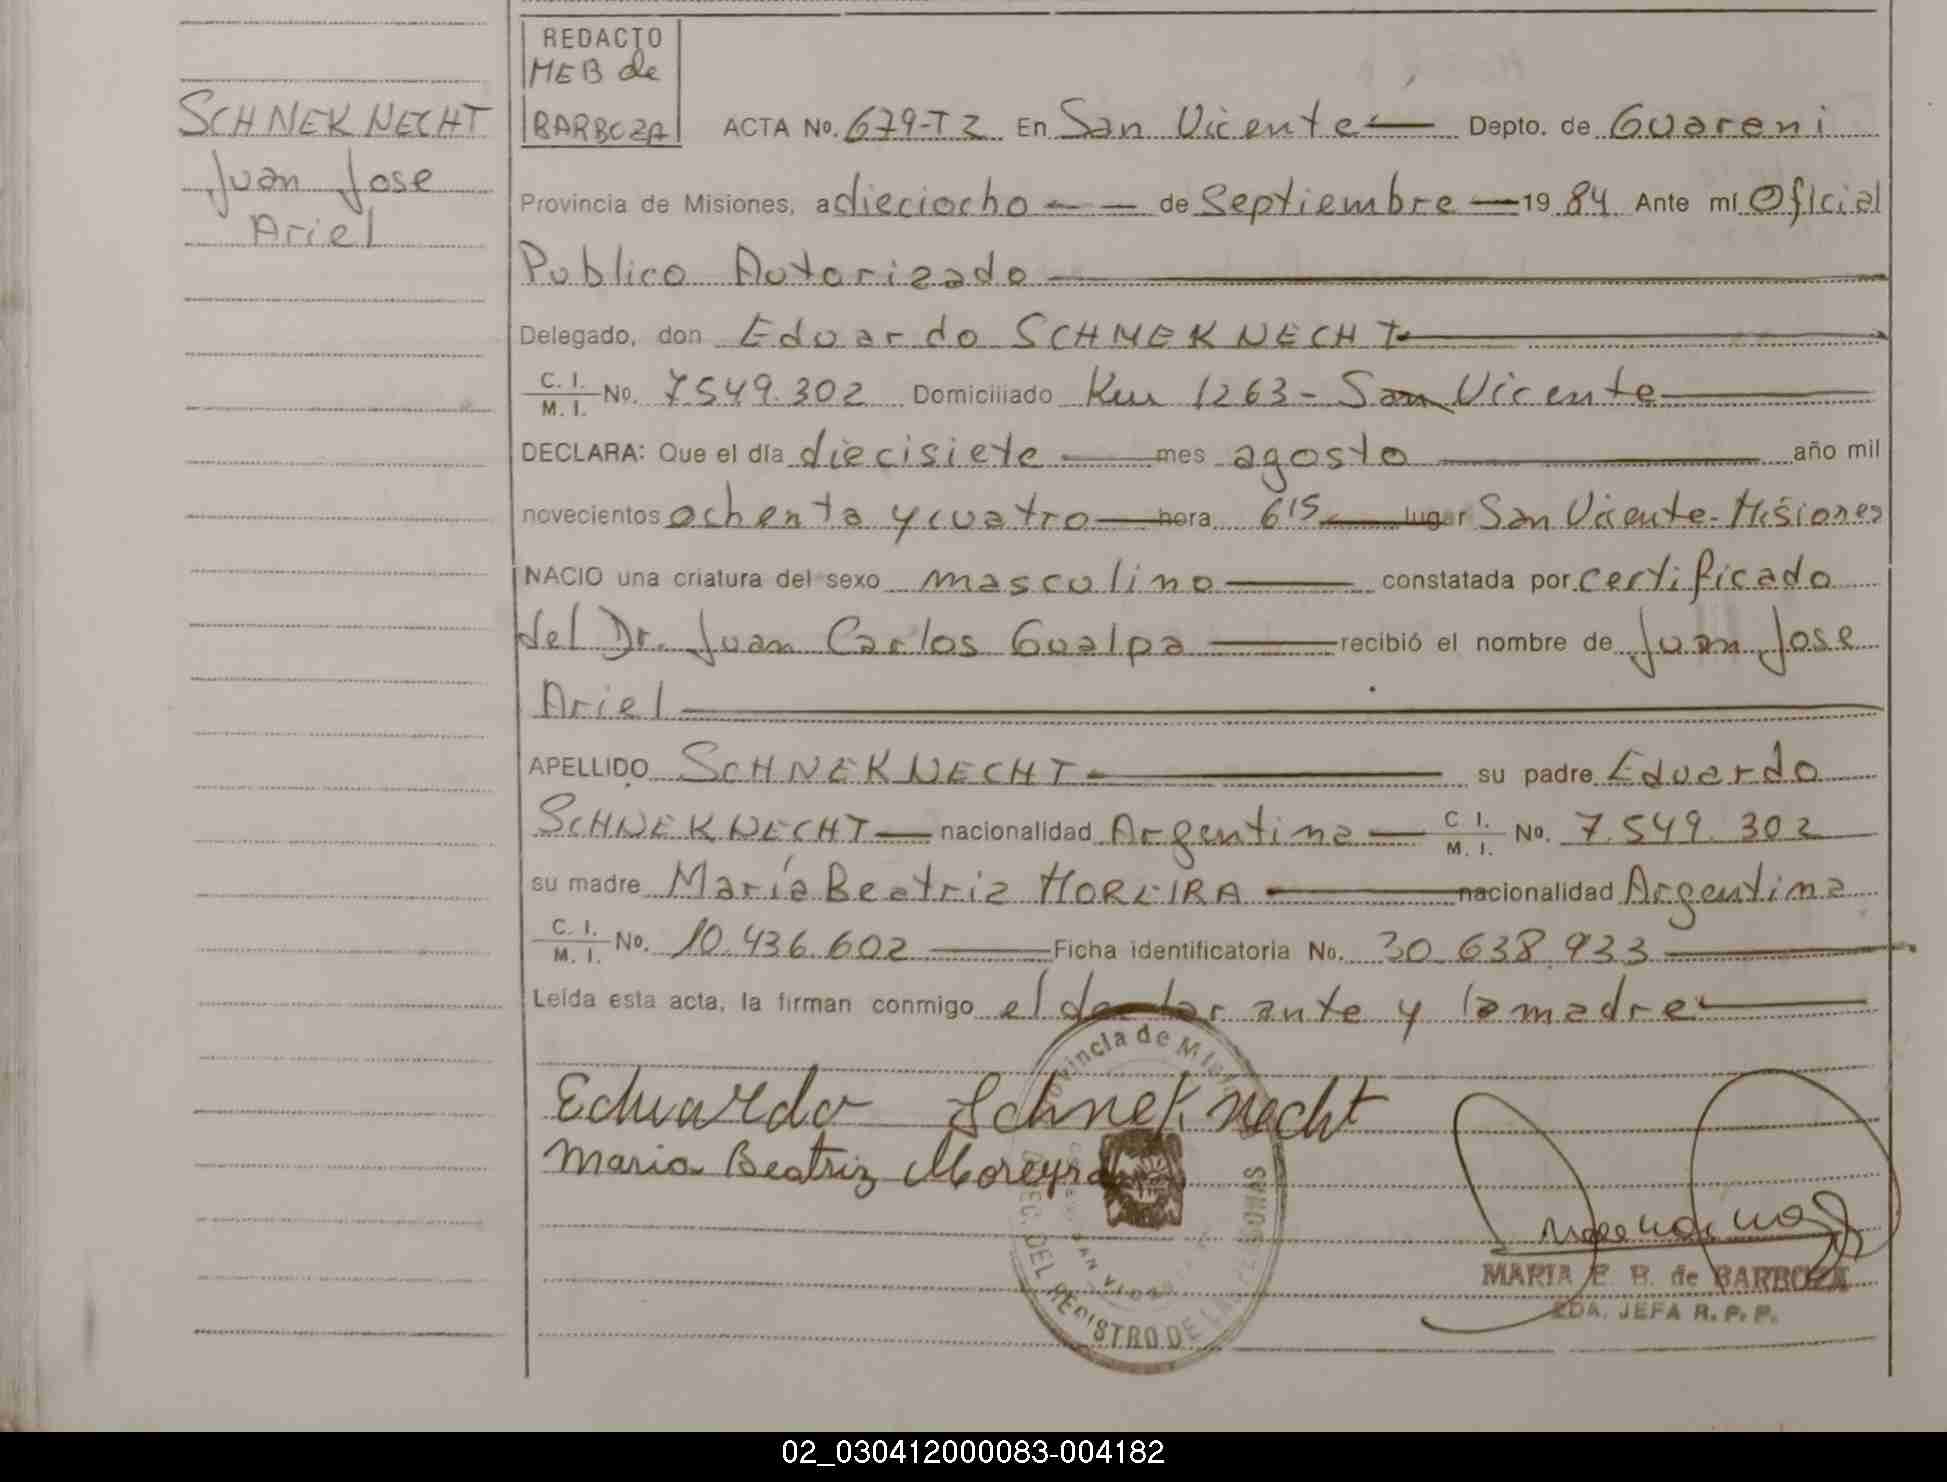 SCHNEKNECHT
Juan Jose
Ariel
REDACTO
MEB de
BARBOZA
ACTA No. 679-T2 En San Vicente Depto. de Guareni
Provincia de Misiones, a dieciocho de Septiembre 19 84 Ante mí Oficial
Publico Autorizado
Delegado, don Eduardo SCHNEKNECHT
C. I. / M. I. No. 7549.302 Domiciliado Km 1263 - San Vicente
DECLARA: Que el día diecisiete mes agosto año mil
novecientos ochenta y cuatro hora 6 15 lugar San Vicente - Misiones
NACIO una criatura del sexo masculino constatada por certificado
del Dr. Juan Carlos Gualpa recibió el nombre de Juan Jose
Ariel
APELLIDO SCHNEKNECHT su padre Eduardo
SCHNEKNECHT nacionalidad Argentina C I. / M. I. No. 7.549.302
su madre María Beatriz MOREIRA nacionalidad Argentina
C. I. / M. I. No. 10.436.602 Ficha identificatoria No. 30.638.933
Leída esta acta, la firman conmigo el declarante y la madre
Eduardo Schneknecht
Maria Beatriz Moreyra
Provincia de Misiones
DEL REGISTRO DE LAS PERSONAS
SAN VICENTE
MARIA E. B. de BARBOZA
2DA. JEFA R. P. P.
02_030412000083-004182